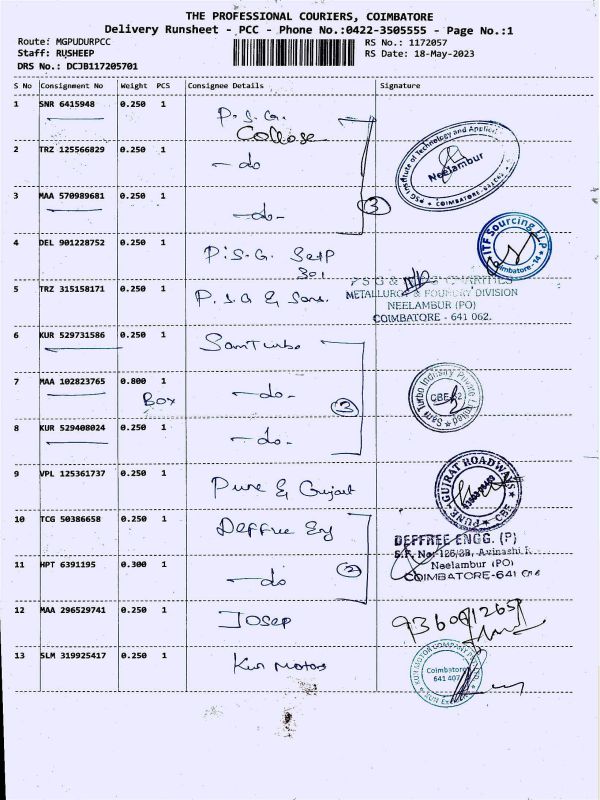 THE PROFESSIONAL COURIERS, COIMBATORE
Delivery Runsheet - PCC - Phone No.:0422-3505555 - Page No.:1
Route: MGPUDURPCC
Staff: RUSHEEP
DRS No.: DCJB117205701
RS No.: 1172057
RS Date: 18-May-2023
S No Consignment No Weight PCS Consignee Details Signature
1 SNR 6415948 0.250 1 P.S.G. Collose
2 TRZ 125566829 0.250 1 -do
3 MAA 570989681 0.250 1 -do-
3
PSG Institute of Technology and Applied
Neelambur
COIMBATORE
4 DEL 901228752 0.250 1 P.S.G.
ITF Sourcing LLP
Coimbatore-14
5 TRZ 315158171 0.250 1 P.S.G & Sons.
P S G & SONS CHARITIES
METALLURGY & FOUNDRY DIVISION
NEELAMBUR (PO)
COIMBATORE - 641 062.
6 KUR 529731586 0.250 1 Sam Turbo
7 MAA 102823765 0.800 1 -do-
Box
3
8 KUR 529408024 0.250 1 -do-
Sam Turbo Industry Private Limited
CBE-62
9 VPL 125361737 0.250 1 Pune & Gujart
PUNE GUJRAT ROADWAYS
CBE
10 TCG 50386658 0.250 1 Deffree Eng
11 HPT 6391195 0.300 1 -do
2
DEFFREE ENGG. (P)
S.F. No: 126/3B, Avinashi
Neelambur (PO)
COIMBATORE-641
12 MAA 296529741 0.250 1 Josep
13 SLM 319925417 0.250 1 Kun Motos
KUN MOTOR COMPANY
Coimbatore
641 407